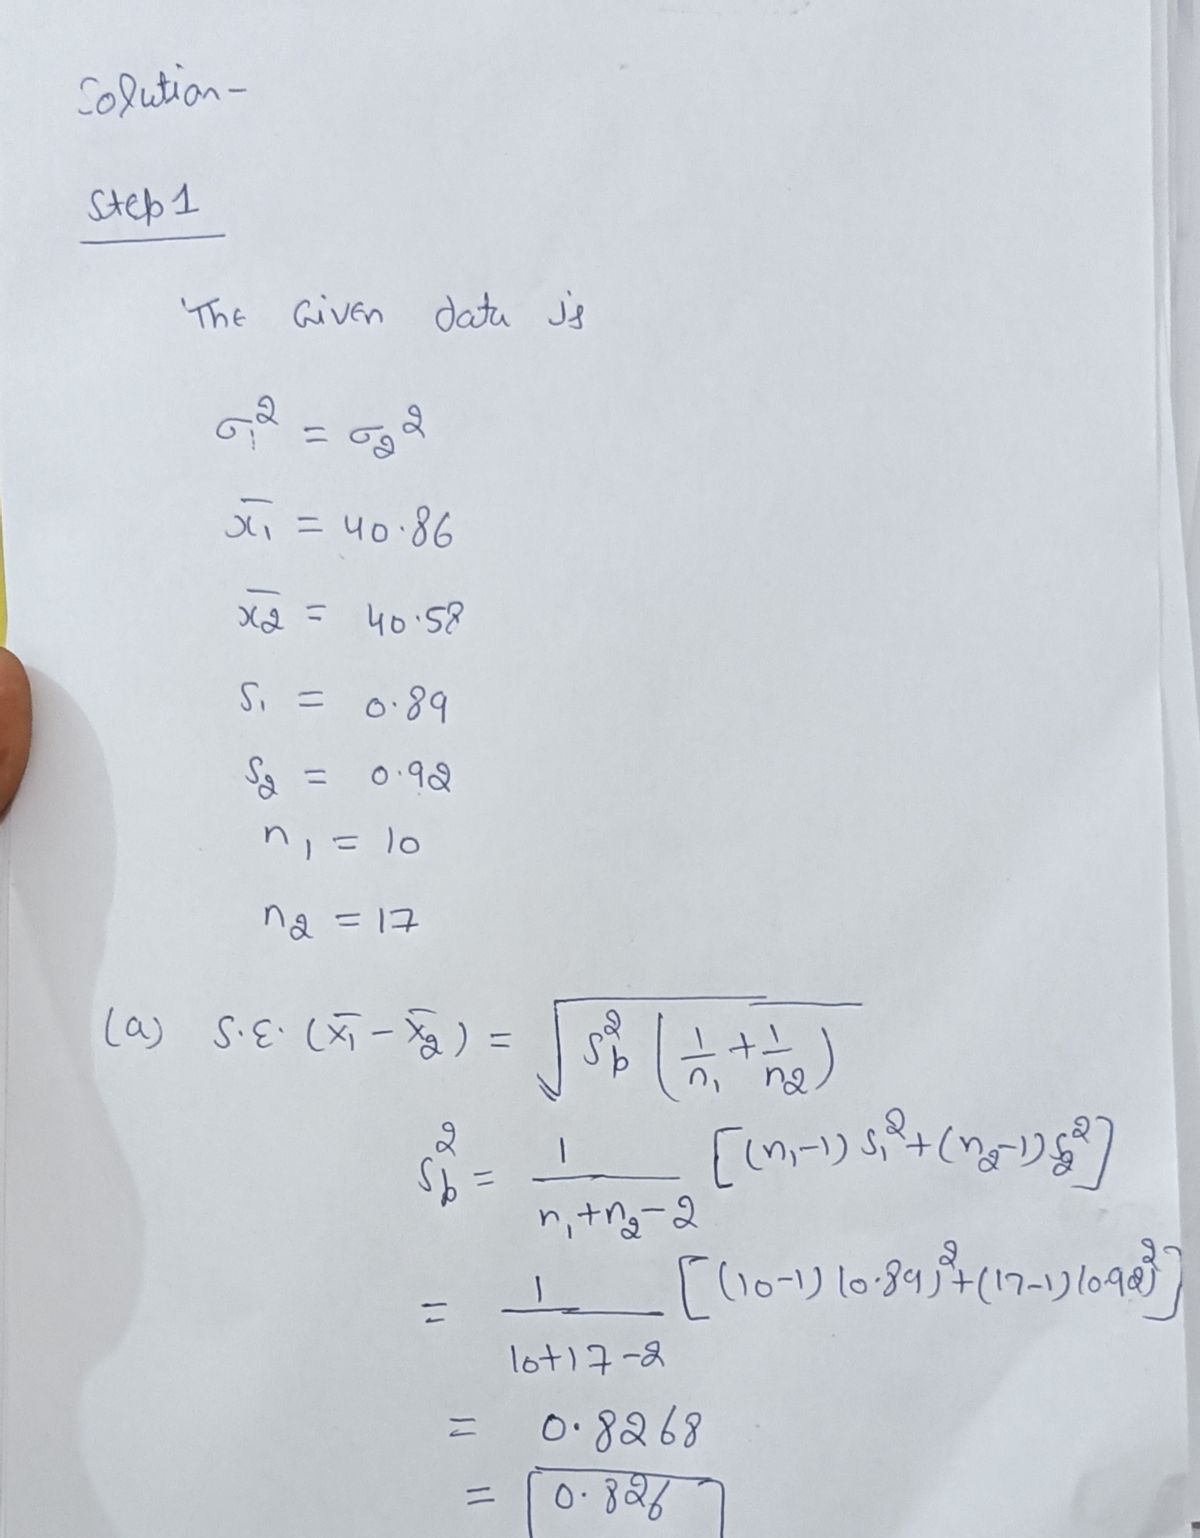 Solution-
Step 1
The Given data is
σ₁² = σ₂²
x̄₁ = 40.86
x̄₂ = 40.58
S₁ = 0.89
S₂ = 0.92
n₁ = 10
n₂ = 17
(a) S.E. (x̄₁ - x̄₂) = √(Sp² (1/n₁ + 1/n₂))
Sp² = 1/(n₁+n₂-2) [(n₁-1) S₁² + (n₂-1) S₂²]
= 1/(10+17-2) [(10-1) (0.89)² + (17-1) (0.92)²]
= 0.8268
= 0.826